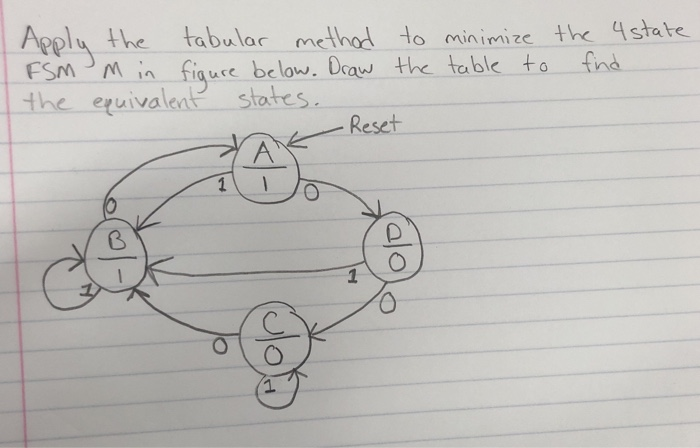 Apply the tabular method to minimize the 4 state
FSM M in figure below. Draw the table to find
the equivalent states.
Reset
A
1
1
0
0
B
1
1
D
0
1
0
C
0
0
1